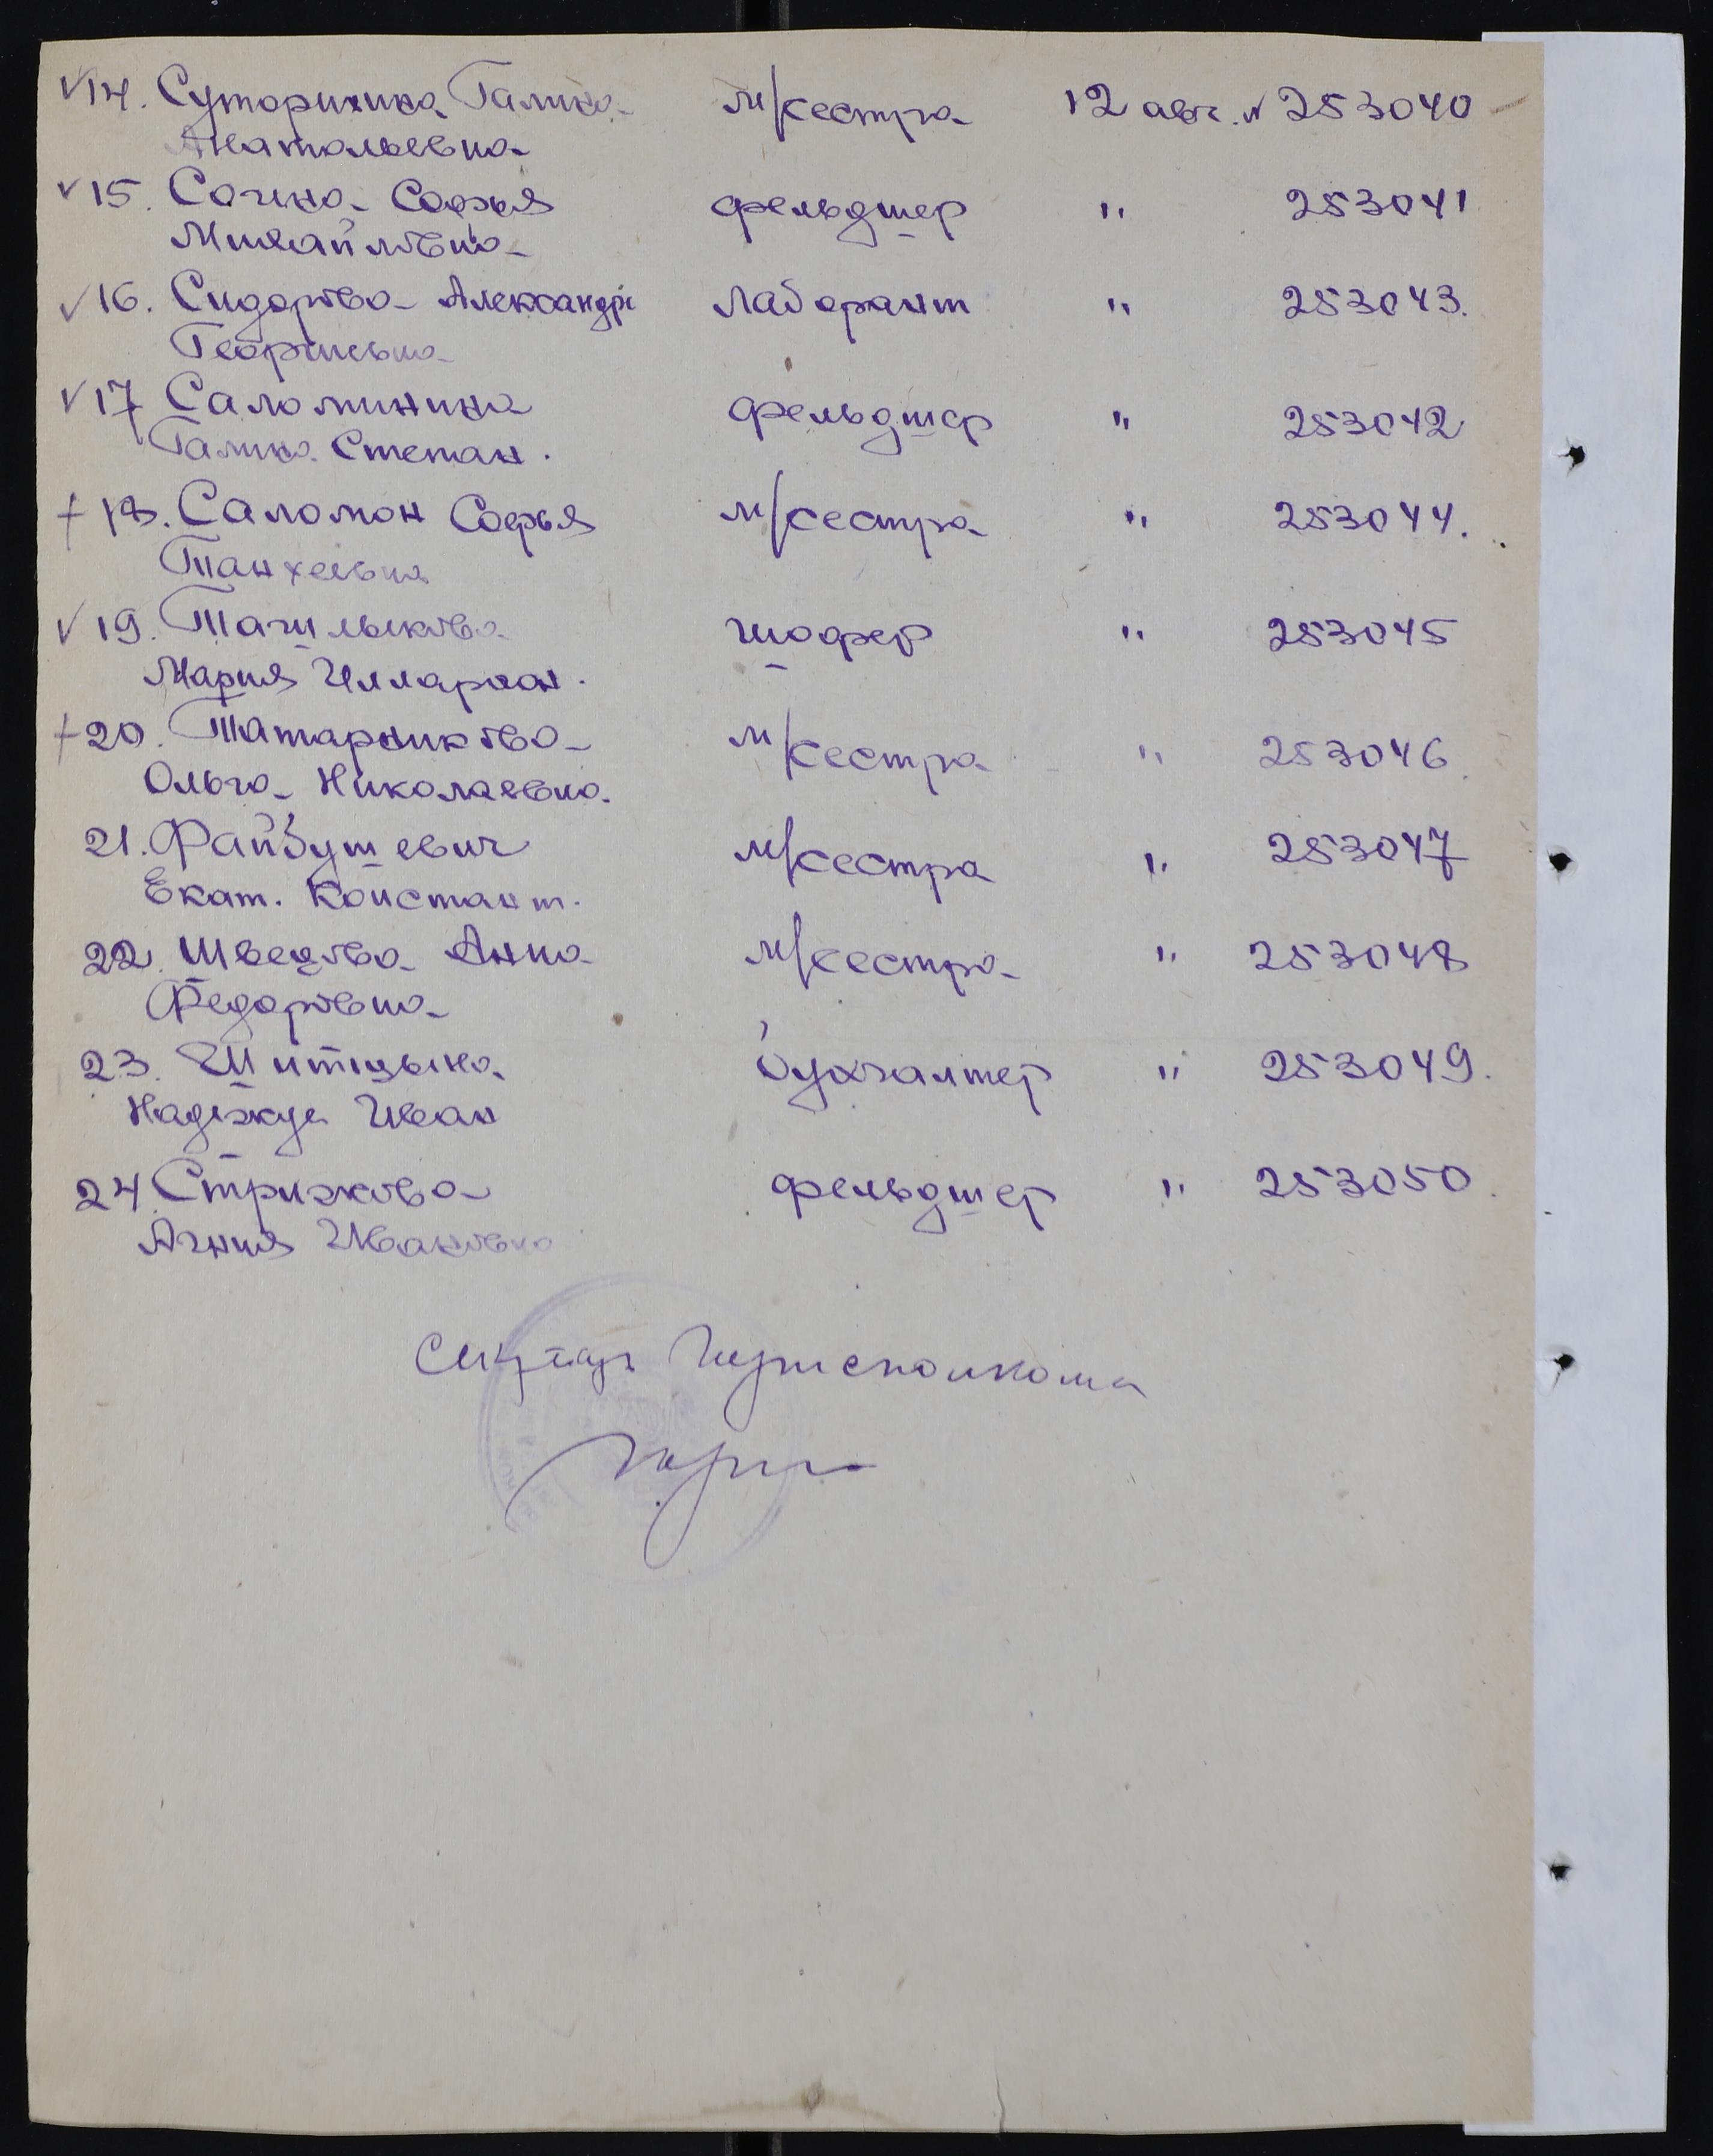 √ 14. Суторихина Галина м/сестра 12 авг. № 253040
Анатольевна
√ 15. Сочна Софья фельдшер " 253041
Михайловна
√ 16. Сидорова Александра лаборант " 253043.
Георгиевна
√ 17 Саломинина фельдшер " 253042
Галина Степан.
+ 18. Саломон Софья м/сестра " 253044.
Танхельевна
√ 19. Тагильцева шофер " 253045
Мария Иллариан.
+ 20. Татарникова м/сестра " 253046.
Ольга Николаевна.
21. Файбушевич м/сестра " 253047
Екат. Констант.
22. Швецова Анна м/сестра " 253048
Федоровна
23. Шитицына бухгалтер " 253049.
Надежда Иван
24. Стрижкова фельдшер " 253050.
Агния Ивановна
Секретарь Горисполкома